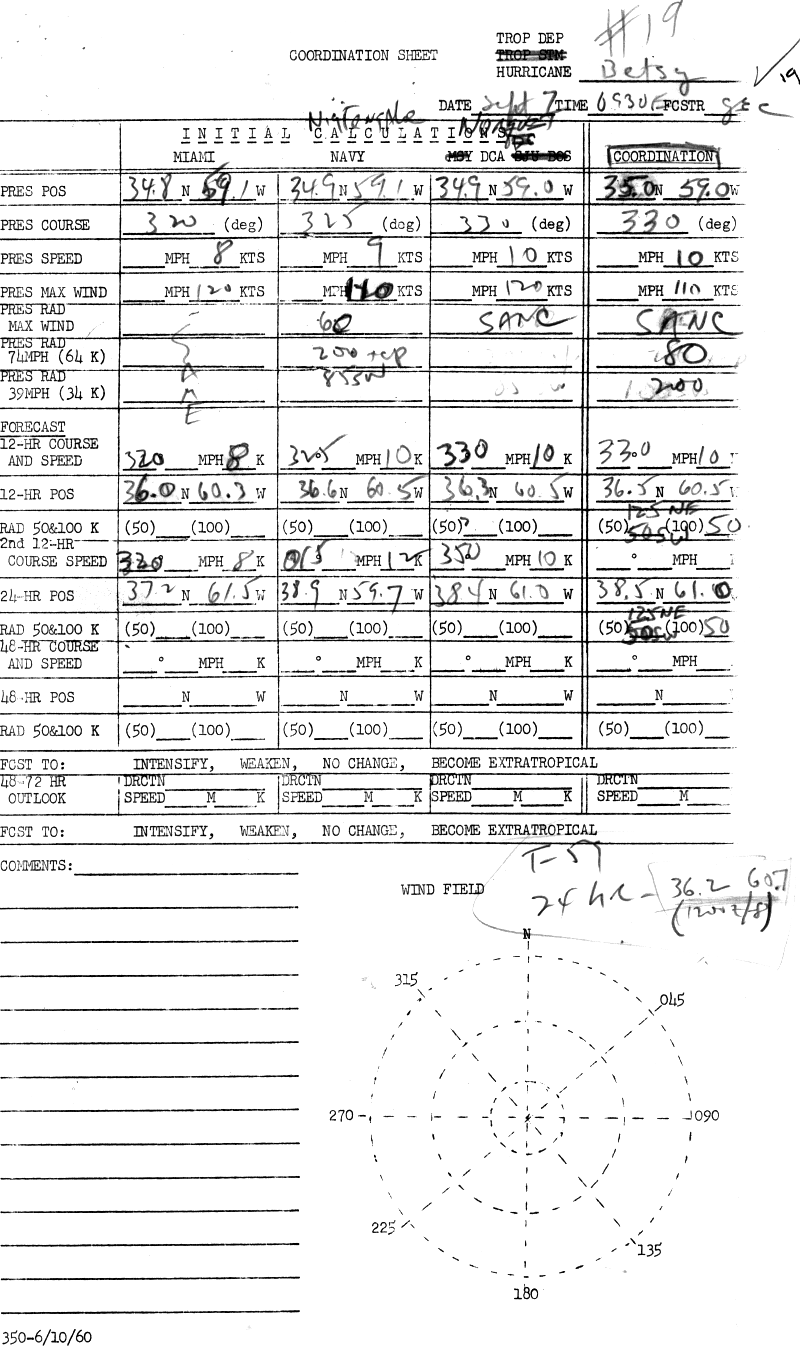 #19
TROP DEP
COORDINATION SHEET TROP STM
HURRICANE Betsy
19
DATE Sept 7 TIME 0930E FCSTR
INITIAL CALCULATIONS
MIAMI NAVY MSY DCA SJU BOS COORDINATION
PRES POS 34.8 N 59.1 W 34.9 N 59.1 W 34.9 N 59.0 W 35.0 N 59.0 W
PRES COURSE 320 (deg) 325 (deg) 330 (deg) 330 (deg)
PRES SPEED MPH 8 KTS MPH 9 KTS MPH 10 KTS MPH 10 KTS
PRES MAX WIND MPH 120 KTS MPH 110 KTS MPH 120 KTS MPH 110 KTS
PRES RAD
MAX WIND SAME 60 SANC SANC
PRES RAD
74MPH (64 K) 200 80
PRES RAD
39MPH (34 K) 85SW 200
FORECAST
12-HR COURSE
AND SPEED 320 MPH 8 K 325 MPH 10 K 330 MPH 10 K 330 MPH 10
12-HR POS 36.0 N 60.3 W 36.6 N 60.5 W 36.3 N 60.5 W 36.5 N 60.5 W
125 NE
RAD 50&100 K (50) (100) (50) (100) (50) (100) (50) 50SW (100) 50
2nd 12-HR
COURSE SPEED 330 MPH 8 K 015 MPH 12 K 350 MPH 10 K ° MPH
24-HR POS 37.2 N 61.5 W 38.9 N 59.7 W 38.4 N 61.0 W 38.5 N 61.0
125 NE
RAD 50&100 K (50) (100) (50) (100) (50) (100) (50) 50SW (100) 50
48-HR COURSE
AND SPEED ° MPH K ° MPH K ° MPH K ° MPH
48-HR POS N W N W N W N
RAD 50&100 K (50) (100) (50) (100) (50) (100) (50) (100)
FCST TO: INTENSIFY, WEAKEN, NO CHANGE, BECOME EXTRATROPICAL
48-72 HR DRCTN DRCTN DRCTN DRCTN
OUTLOOK SPEED M K SPEED M K SPEED M K SPEED M
FCST TO: INTENSIFY, WEAKEN, NO CHANGE, BECOME EXTRATROPICAL
COMMENTS:
T-59
WIND FIELD 24 hr - 36.2 60.7
(1200Z/8)
N
315
045
270
090
225
135
180
350-6/10/60